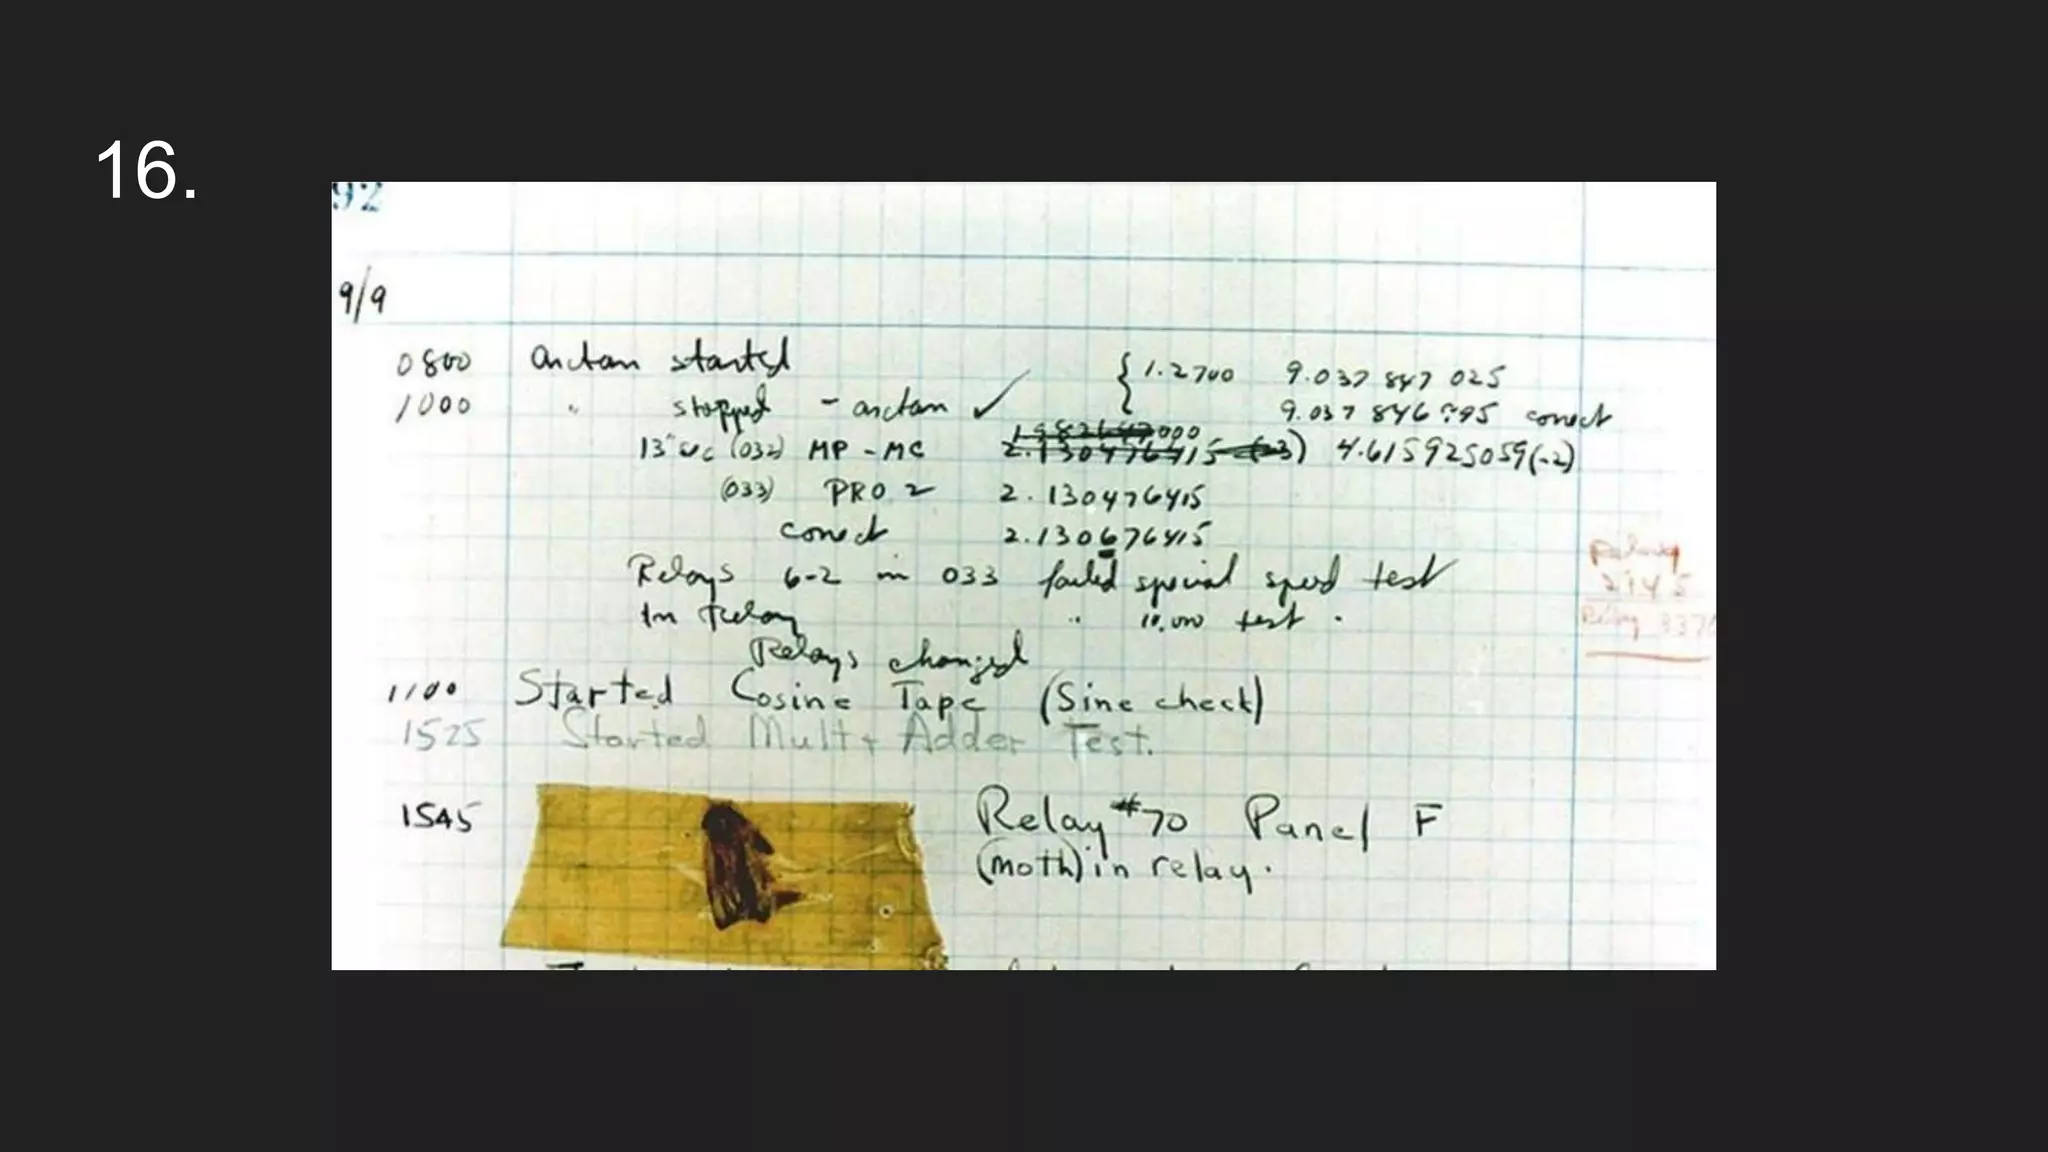 16.
92
9/9
0800 arctan started {1.2700 9.037 847 025
1000 " stopped - arctan ✓ 9.037 846 995 correct
000
13" uc (032) MP - MC 2.130476415 (-3) 4.615925059(-2)
(033) PRO 2 2.130476415
correct 2.130676415
Relays 6-2 in 033 failed special speed test
In Relay " 10,000 test .
Relays changed
Relay
2145
Relay 337
1100 Started Cosine Tape (Sine check)
1525 Started Mult + Adder Test.
1545 Relay #70 Panel F
(moth) in relay.